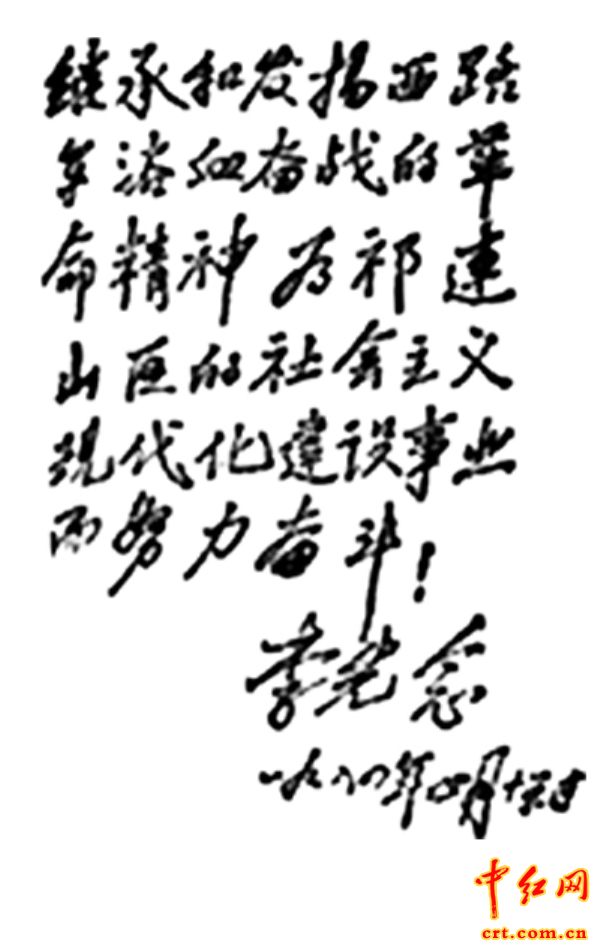 继承和发扬西路
军浴血奋战的革
命精神 为祁连
山区的社会主义
现代化建设事业
而努力奋斗！
李先念
一九八四年 月十 日
中红网
crt.com.cn